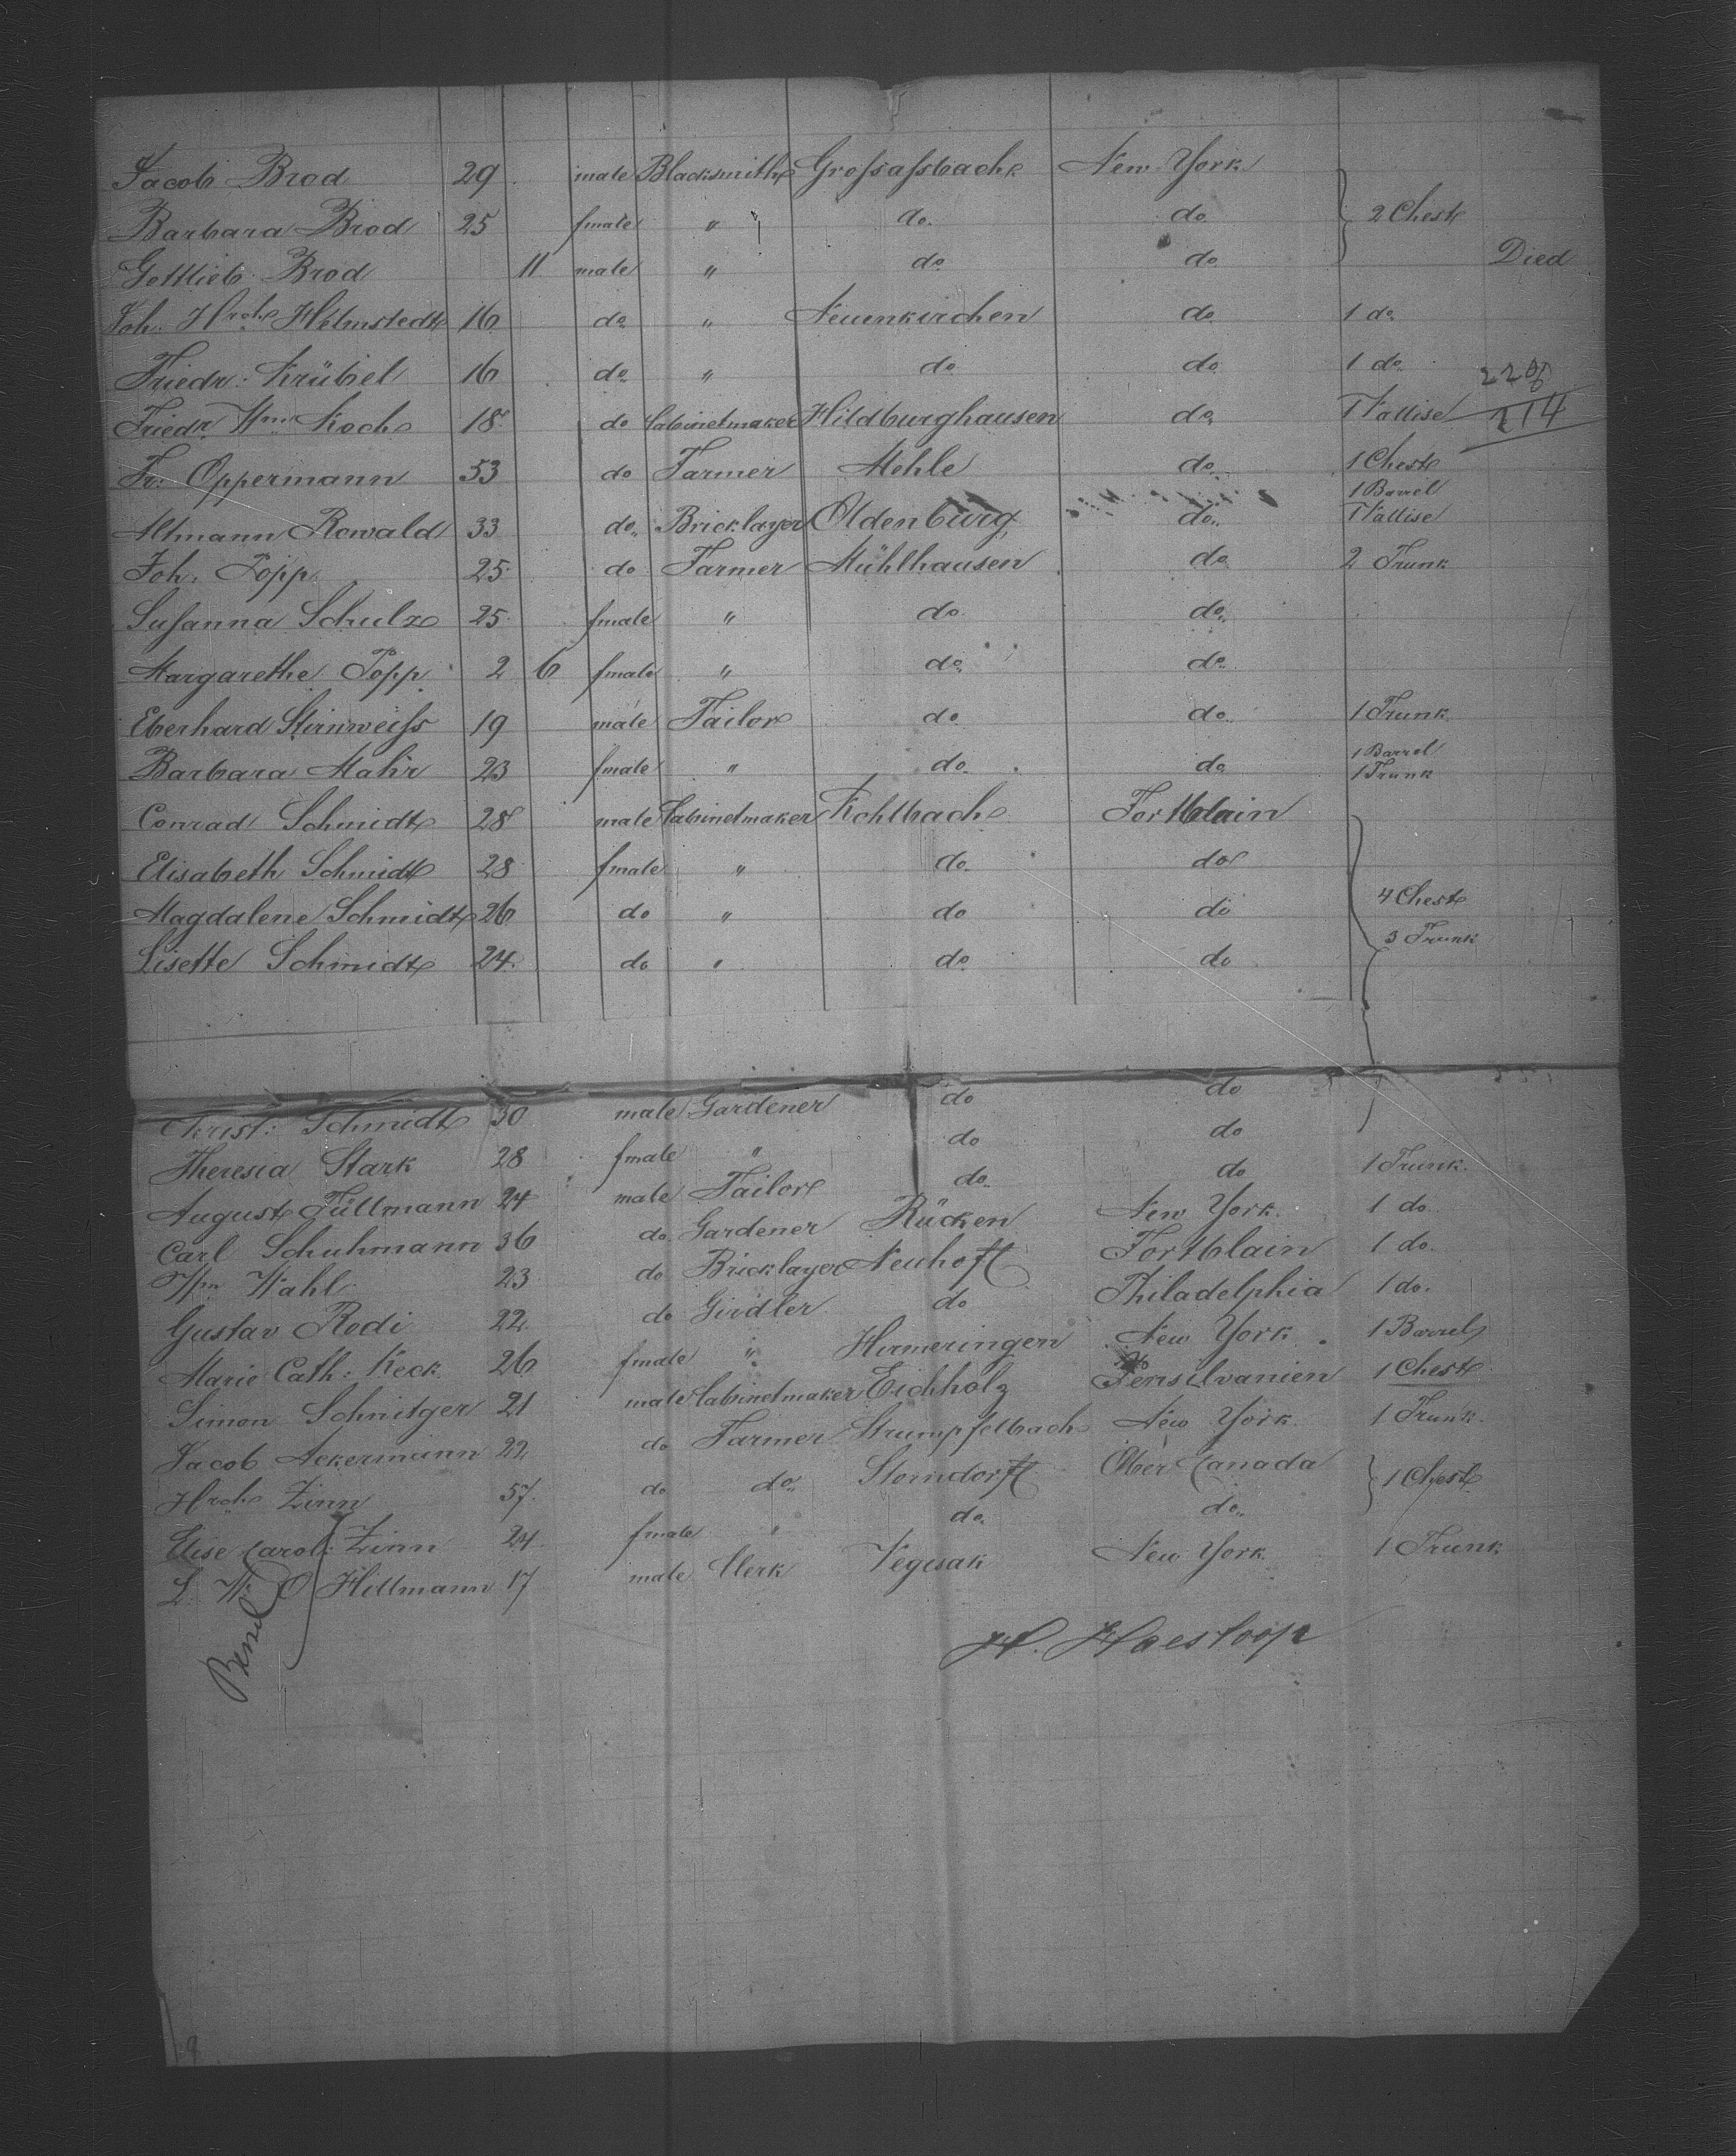 Jacob Brod 29 male Blacksmith Großaßbach New York
Barbara Brod 25 fmale " do. do 2 Chest
Gottlieb Brod 11 male " do do Died
Joh. Hrch Helmstedt 16 do " Neuenkirchen do 1 do
Friedr: Krübel 16 do " do do 1 do 228
Friedr. Wm Koch 18 do Cabinetmaker Hildburghausen do 1 Vallise 114
Fr: Oppermann 53 do Farmer Mehle do 1 Chest
1 Barrel
Altmann Rowald 33 do Bricklayer Oldenburg do 1 Vallise
Joh. Popp 25 do Farmer Mühlhausen do 2 Trunk
Susanna Schulz 25 fmale " do do
Margarethe Popp 2 6 fmale " do do
Eberhard Stirnweiß 19 male Tailor do do 1 Trunk
1 Barrel
Barbara Mahr 23 fmale " do do 1 Trunk
Conrad Schmidt 28 male Cabinetmaker Kohlbach Fortblain
Elisabeth Schmidt 28 fmale " do do
Magdalene Schmidt 26 do " do do 4 Chest
3 Trunk
Lisette Schmidt 24 do " do do
Christ: Schmidt 30 male Gardener do do
Theresia Stark 28 fmale " do do
August Tüllmann 24 male Tailor do do 1 Trunk
Carl Schuhmann 36 do Gardener Rücken New York 1 do
Wm Wahl 23 do Bricklayer Neuhoff Fortblain 1 do.
Gustav Rodi 22 do Girdler do Philadelphia 1 do.
Marie Cath: Keck 26 fmale " Hermeringen New York 1 Barrel
Simon Schnitger 21 male Cabinetmaker Eichholz Pensilvanien 1 Chest
Jacob Ackermann 22 do Farmer Strumpfelbach New York 1 Trunk
Hrch Zinn 57 do do Storndorff Ober Canada 1 Chest
Elise Carol: Zinn 24 fmale " do do
L. W. O Hillmann 17 male Clerk Vegesak New York 1 Trunk
H. Haesloop